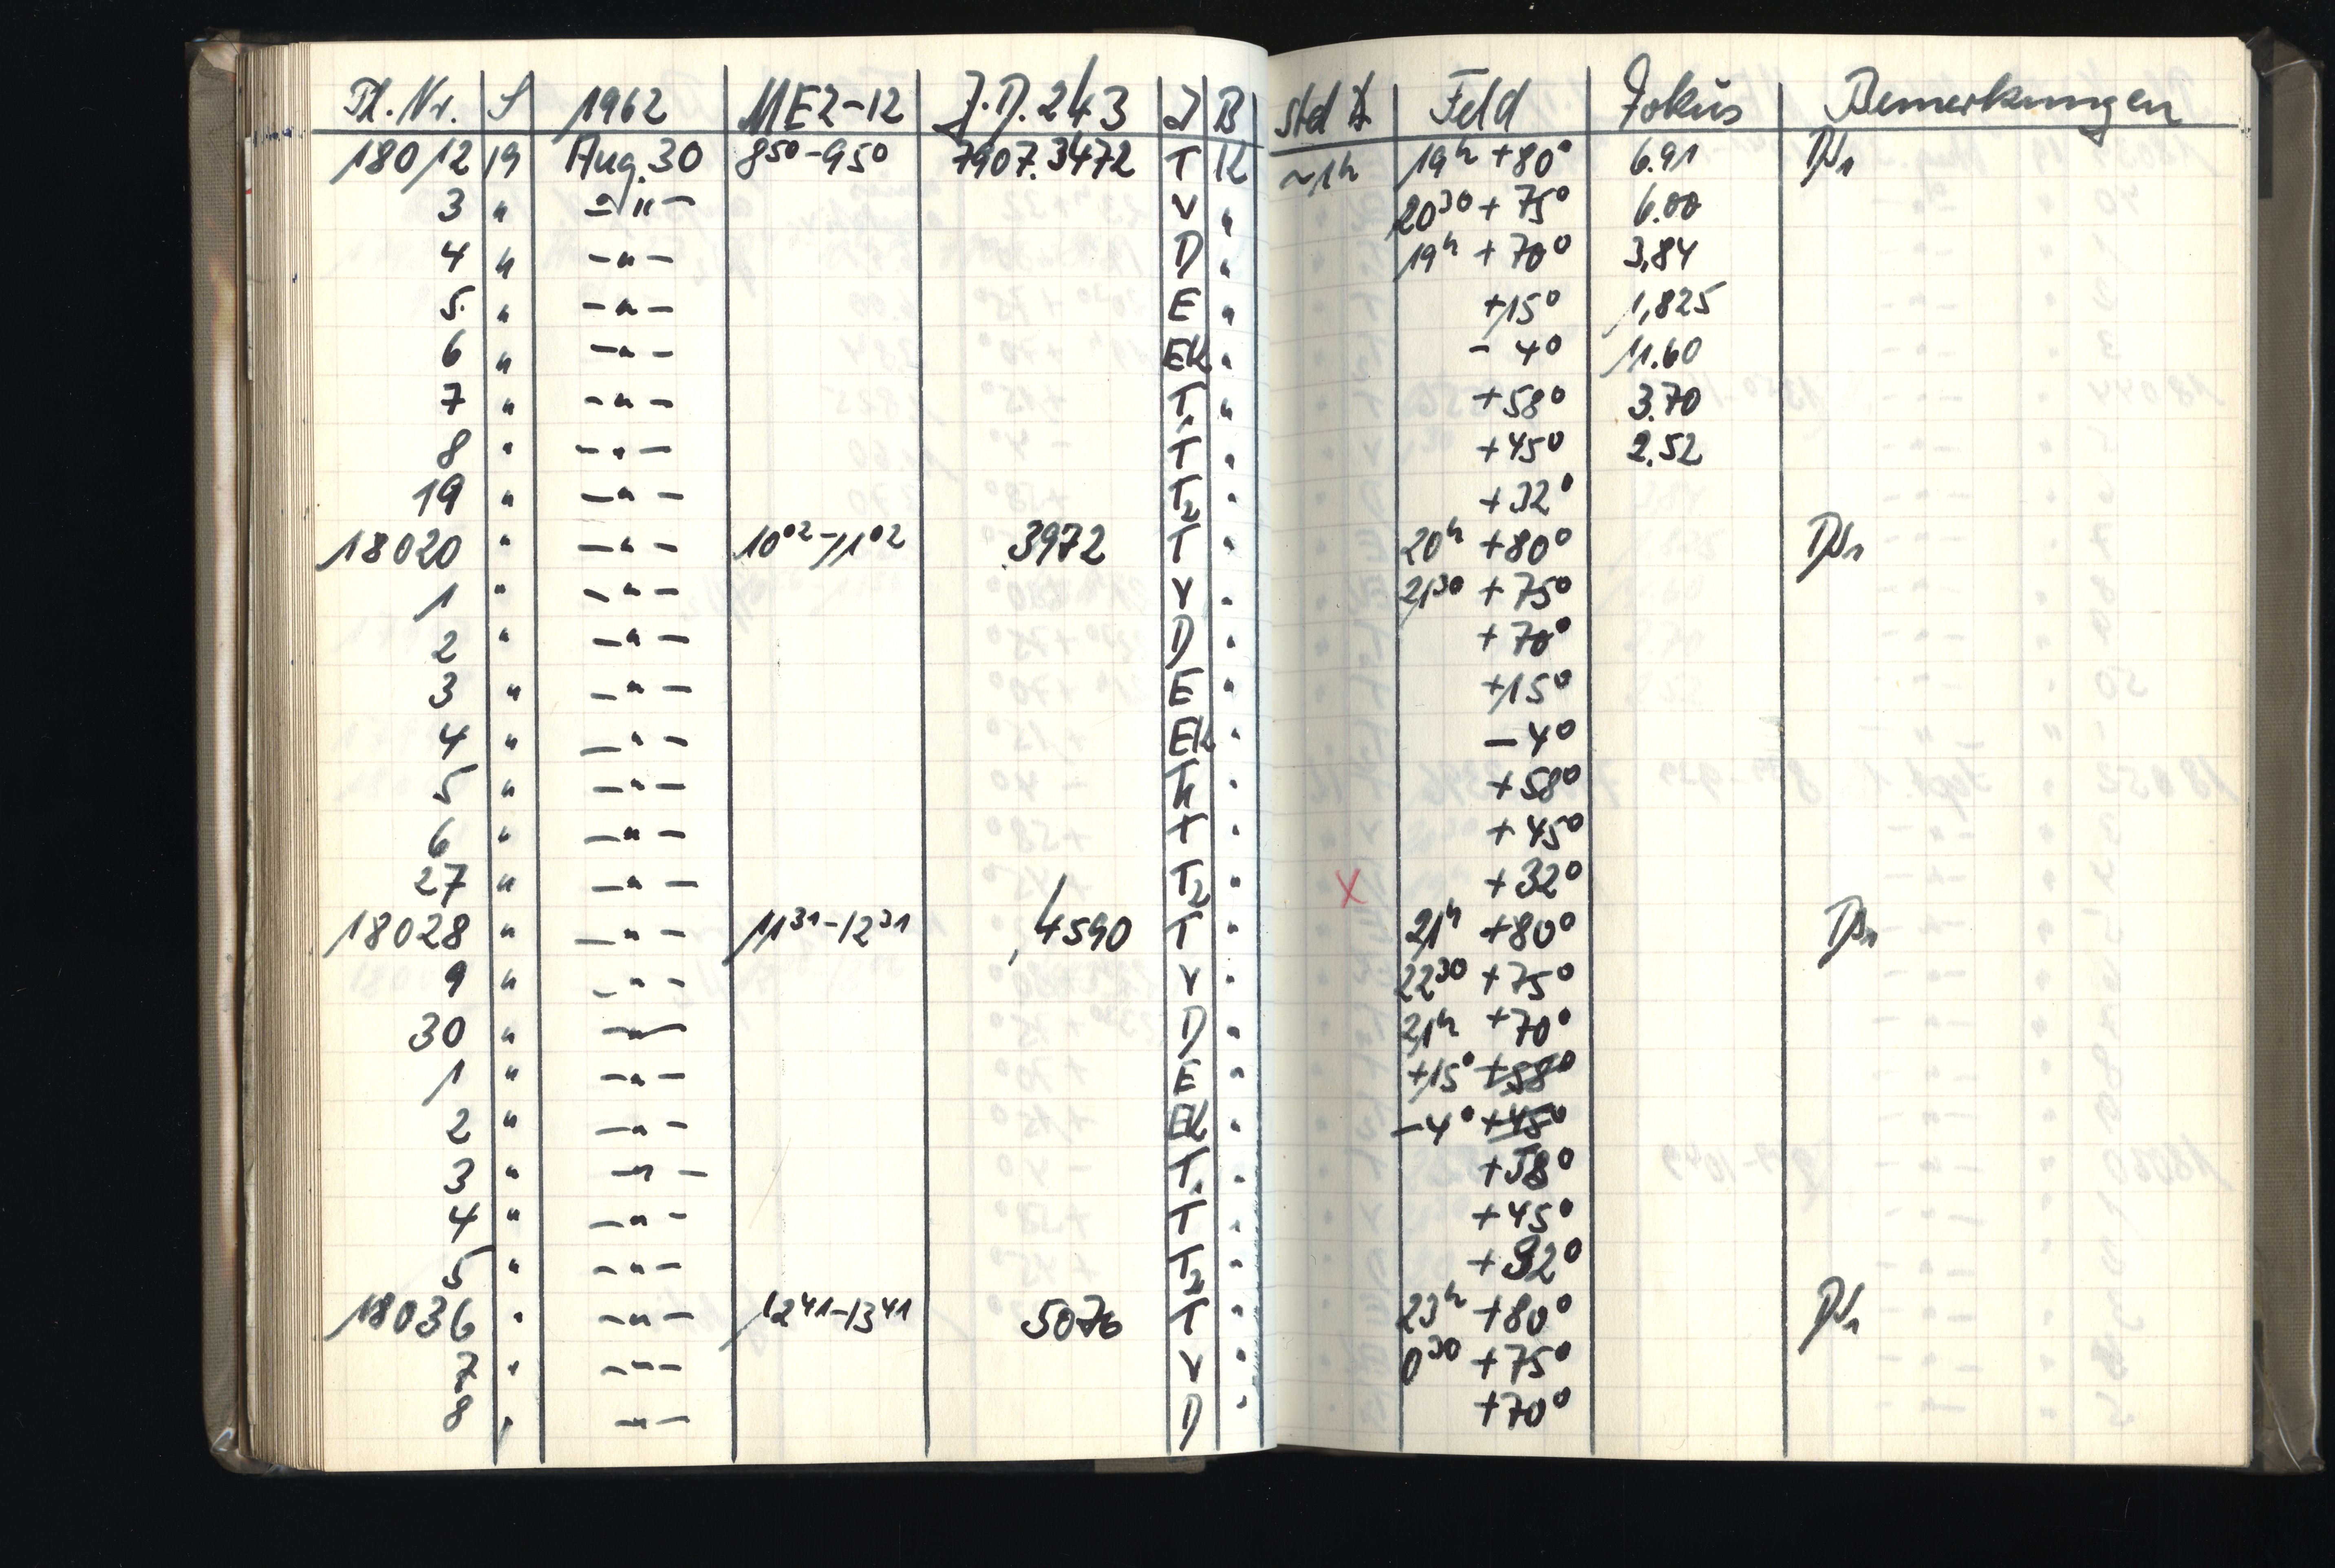 Pl. Nr. S 1962 MEZ-12 J.D. 243 J B Std ∢ Feld Fokus Bemerkungen
18012 19 Aug. 30 8⁵⁰-9⁵⁰ 7907.3472 T K ~1ʰ 19ʰ +80° 6.91
3 " -"- V " 20³⁰ +75° 6.00
4 " -"- D " 19ʰ +70° 3,84
5. " -"- E " +15° 1,825
6 " -"- EK " -4° 11.60
7 " -"- T₁ " +58° 3.70
8 " -"- T " +45° 2.52
19 " -"- T₂ " +32°
18020 " -"- 10⁰²-11⁰² .3972 T " 20ʰ +80°
1 " -"- V " 21³⁰ +75°
2 " -"- D " +70°
3 " -"- E " +15°
4 " -"- EK " -4°
5 " -"- T₁ " +58°
6 " -"- T " +45°
27 " -"- T₂ " X +32°
18028 " -"- 11³¹-12³¹ .4590 T " 21ʰ +80°
9 " -"- V " 22³⁰ +75°
30 " -"- D " 21ʰ +70°
1 " -"- E " +15° +58°
2 " -"- EK " -4° +45°
3 " -"- T₁ " +58°
4 " -"- T " +45°
5 " -"- T₂ " +32°
18036 " -"- 12⁴¹-13⁴¹ 5076 T " 23ʰ +80°
7 " -"- V " 0³⁰ +75°
8 " -"- D " +70°